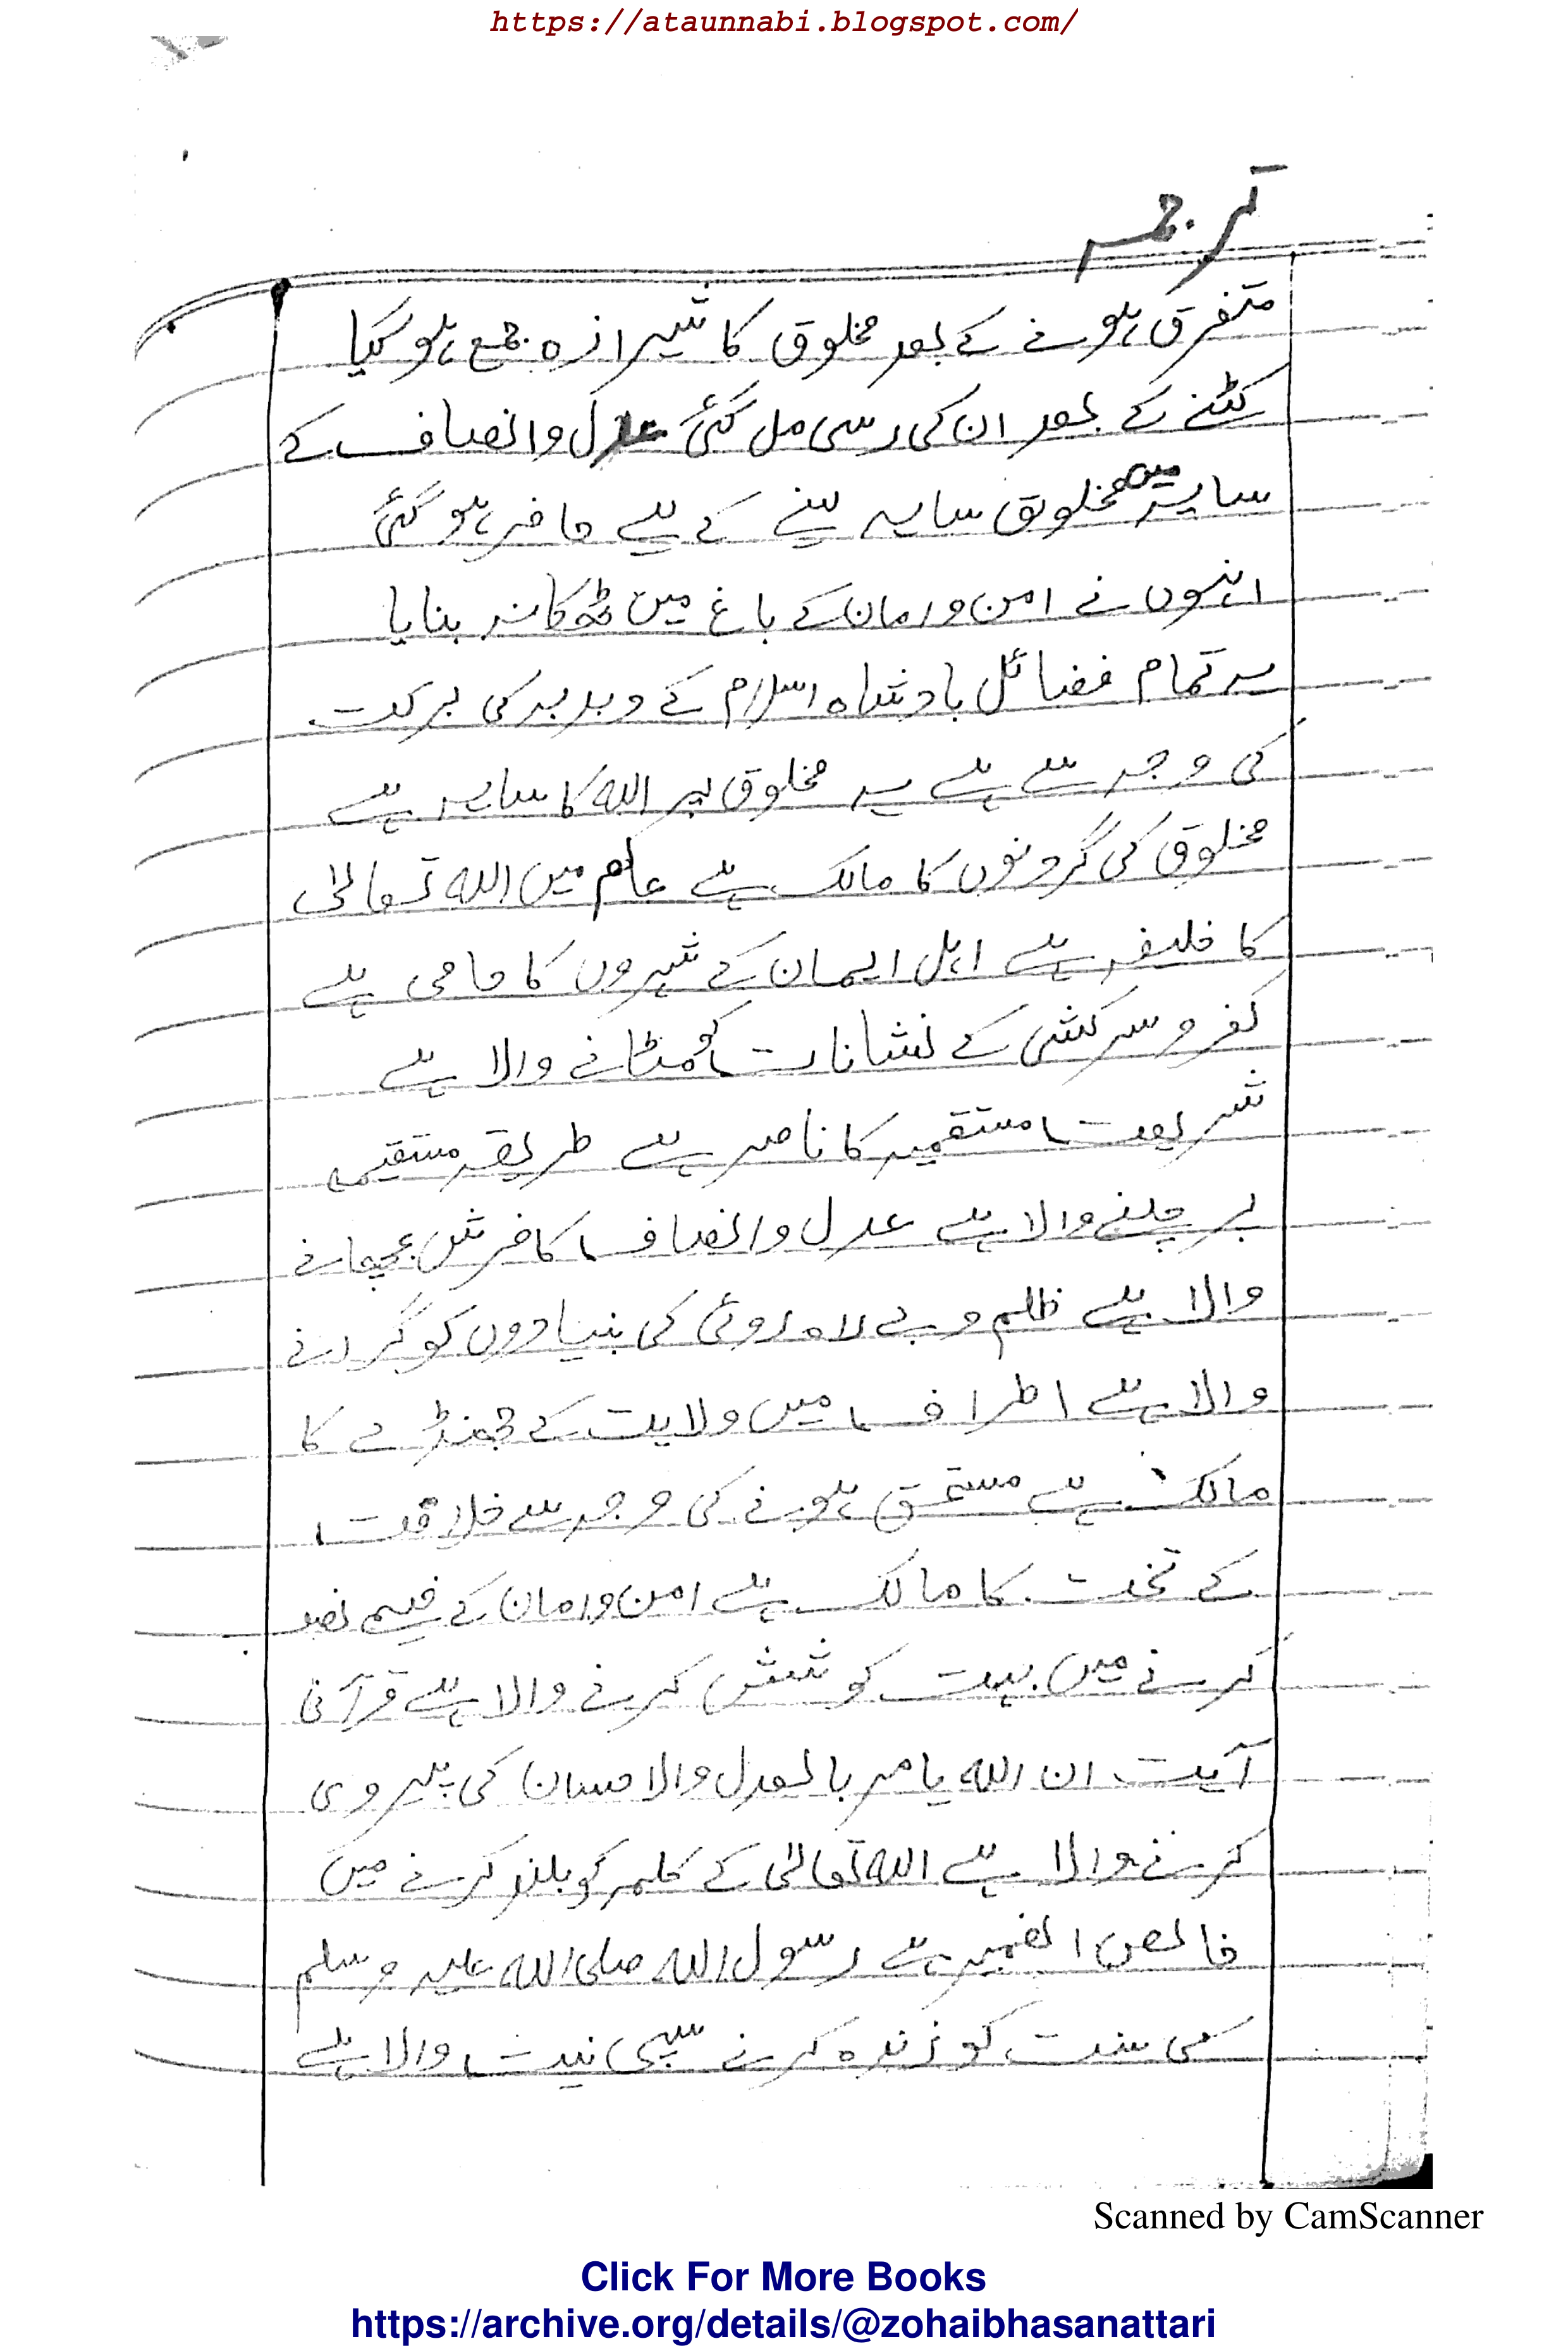 https://ataunnabi.blogspot.com/
ترجمہ
متفرق ہونے کے بعد مخلوق کا شیرازہ جمع ہو گیا
کٹنے کے بعد ان کی رسی مل گئی عدل و انصاف کے
سایہ میں مخلوق سایہ لینے کے لیے حاضر ہو گئی
انہوں نے امن و امان کے باغ میں ٹھکانہ بنایا
یہ تمام فضائل بادشاہ اسلام کے دبدبہ کی برکت
کی وجہ سے ہے یہ مخلوق پر اللہ کا سایہ ہے
مخلوق کی گردنوں کا مالک ہے عالم میں اللہ تعالیٰ
کا خلیفہ ہے اہل ایمان کے شہروں کا حامی ہے
کفر و سرکشی کے نشانات کو مٹانے والا ہے
شریعت مستقمیہ کا ناصر ہے طریقہ مستقیمہ
پر چلنے والا ہے عدل و انصاف کا فرش بچھانے
والا ہے ظلم و بے راہ روئی کی بنیادوں کو گرانے
والا ہے اطراف میں ولایت کے جھنڈے کا
مالک ہے مستحق ہونے کی وجہ سے خلافت
کے تخت کا مالک ہے امن و امان کے خیمے نصب
کرنے میں بہت کوشش کرنے والا ہے قرآنی
آیت ان اللہ یامر بالعدل والاحسان کی پیروی
کرنے والا ہے اللہ تعالیٰ کے کلمہ کو بلند کرنے میں
خالص الضمیر ہے رسول اللہ صلی اللہ علیہ وسلم
کی سنت کو زندہ کرنے سچی نیت والا ہے
Scanned by CamScanner
Click For More Books
https://archive.org/details/@zohaibhasanattari